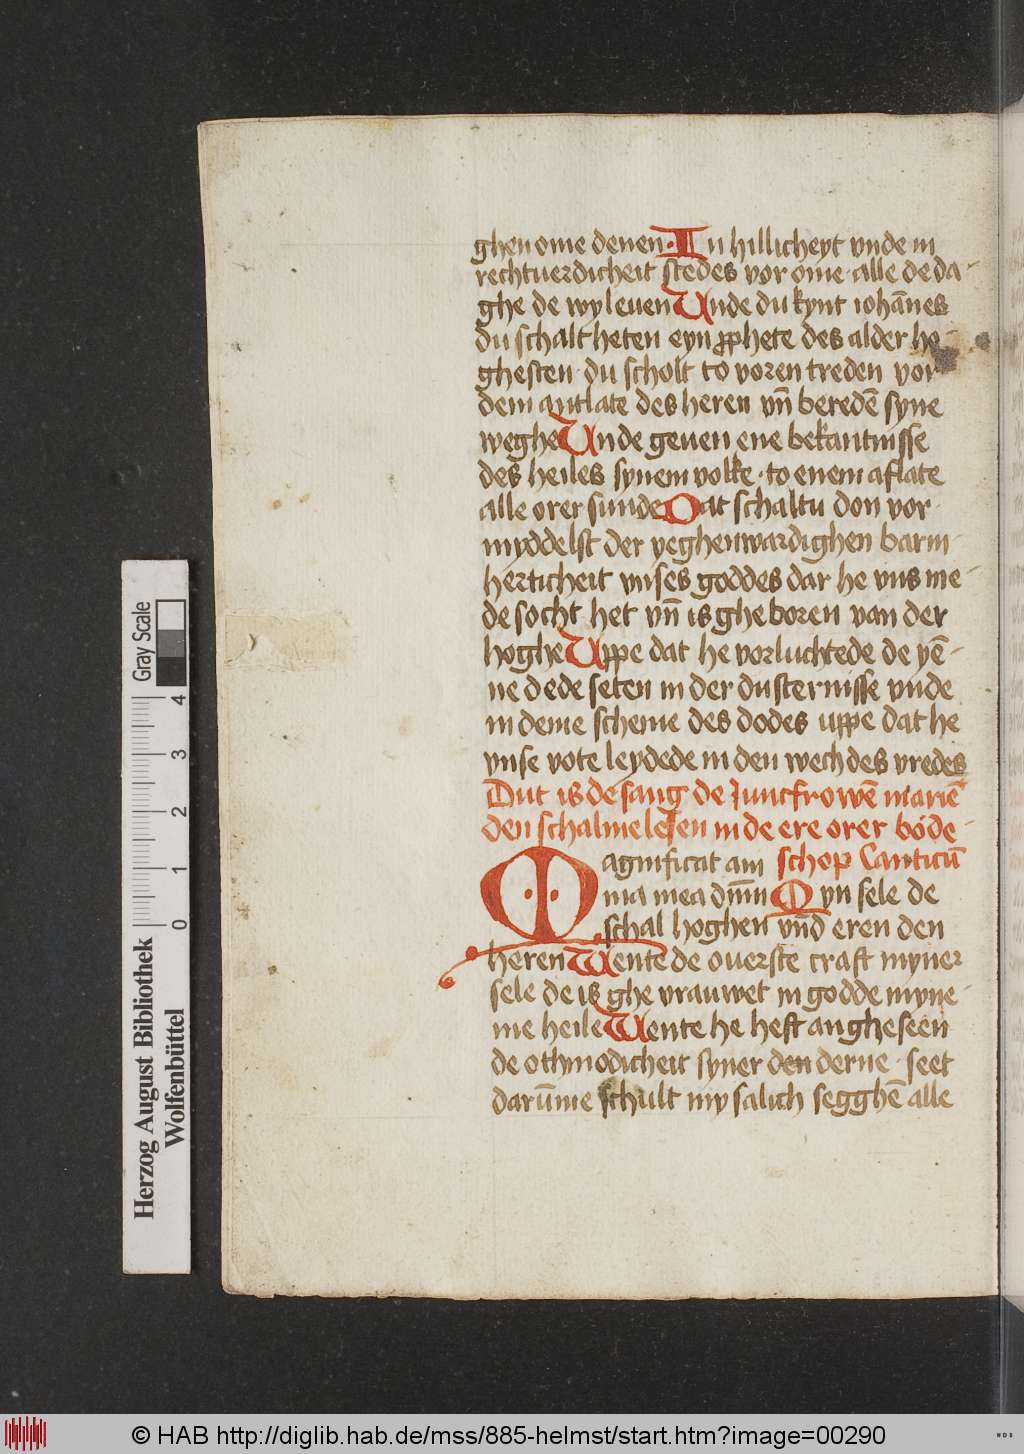 ghen ome denen · In hillicheyt vnde in
rechtuerdicheit stedes vor ome · alle de da-
ghe de wy leuen Unde du kynt iohānes
du schalt heten eyn ꝓphete des alder ho-
ghesten · du scholt to voren treden vor
dem antlate des heren vn̄ beredē syne
weghe Unde geuen ene bekantnisse
des heiles synem volke · to enem aflate
alle orer sunde Dat schaltu don vor-
myddelst der yeghenwardighen barm-
herticheit vnses goddes dar he vns me-
de socht het vn̄ is gheboren van der
hoghe Uppe dat he vorluchtede de yē-
ne de de seten in der dusternisse vnde
in deme scheme des dodes uppe dat he
vnse vote leydede in den wech des vredes
Dut is de sang de Juncfrowē mariē
den schalme lesen in de ere orer bode-
Magnificat am schop Canticū
nia mea dnm̄ Myn sele de
schal hoghen vnd eren den
heren Wente de ouerste craft myner
sele de is ghe vrauwet in godde myne-
me heile Wente he heft angheseen
de othmodicheit syner den derne · seet
darūme schult my salich segghē alle
Gray Scale
4
3
2
1
0
Herzog August Bibliothek
Wolfenbüttel
© HAB http://diglib.hab.de/mss/885-helmst/start.htm?image=00290